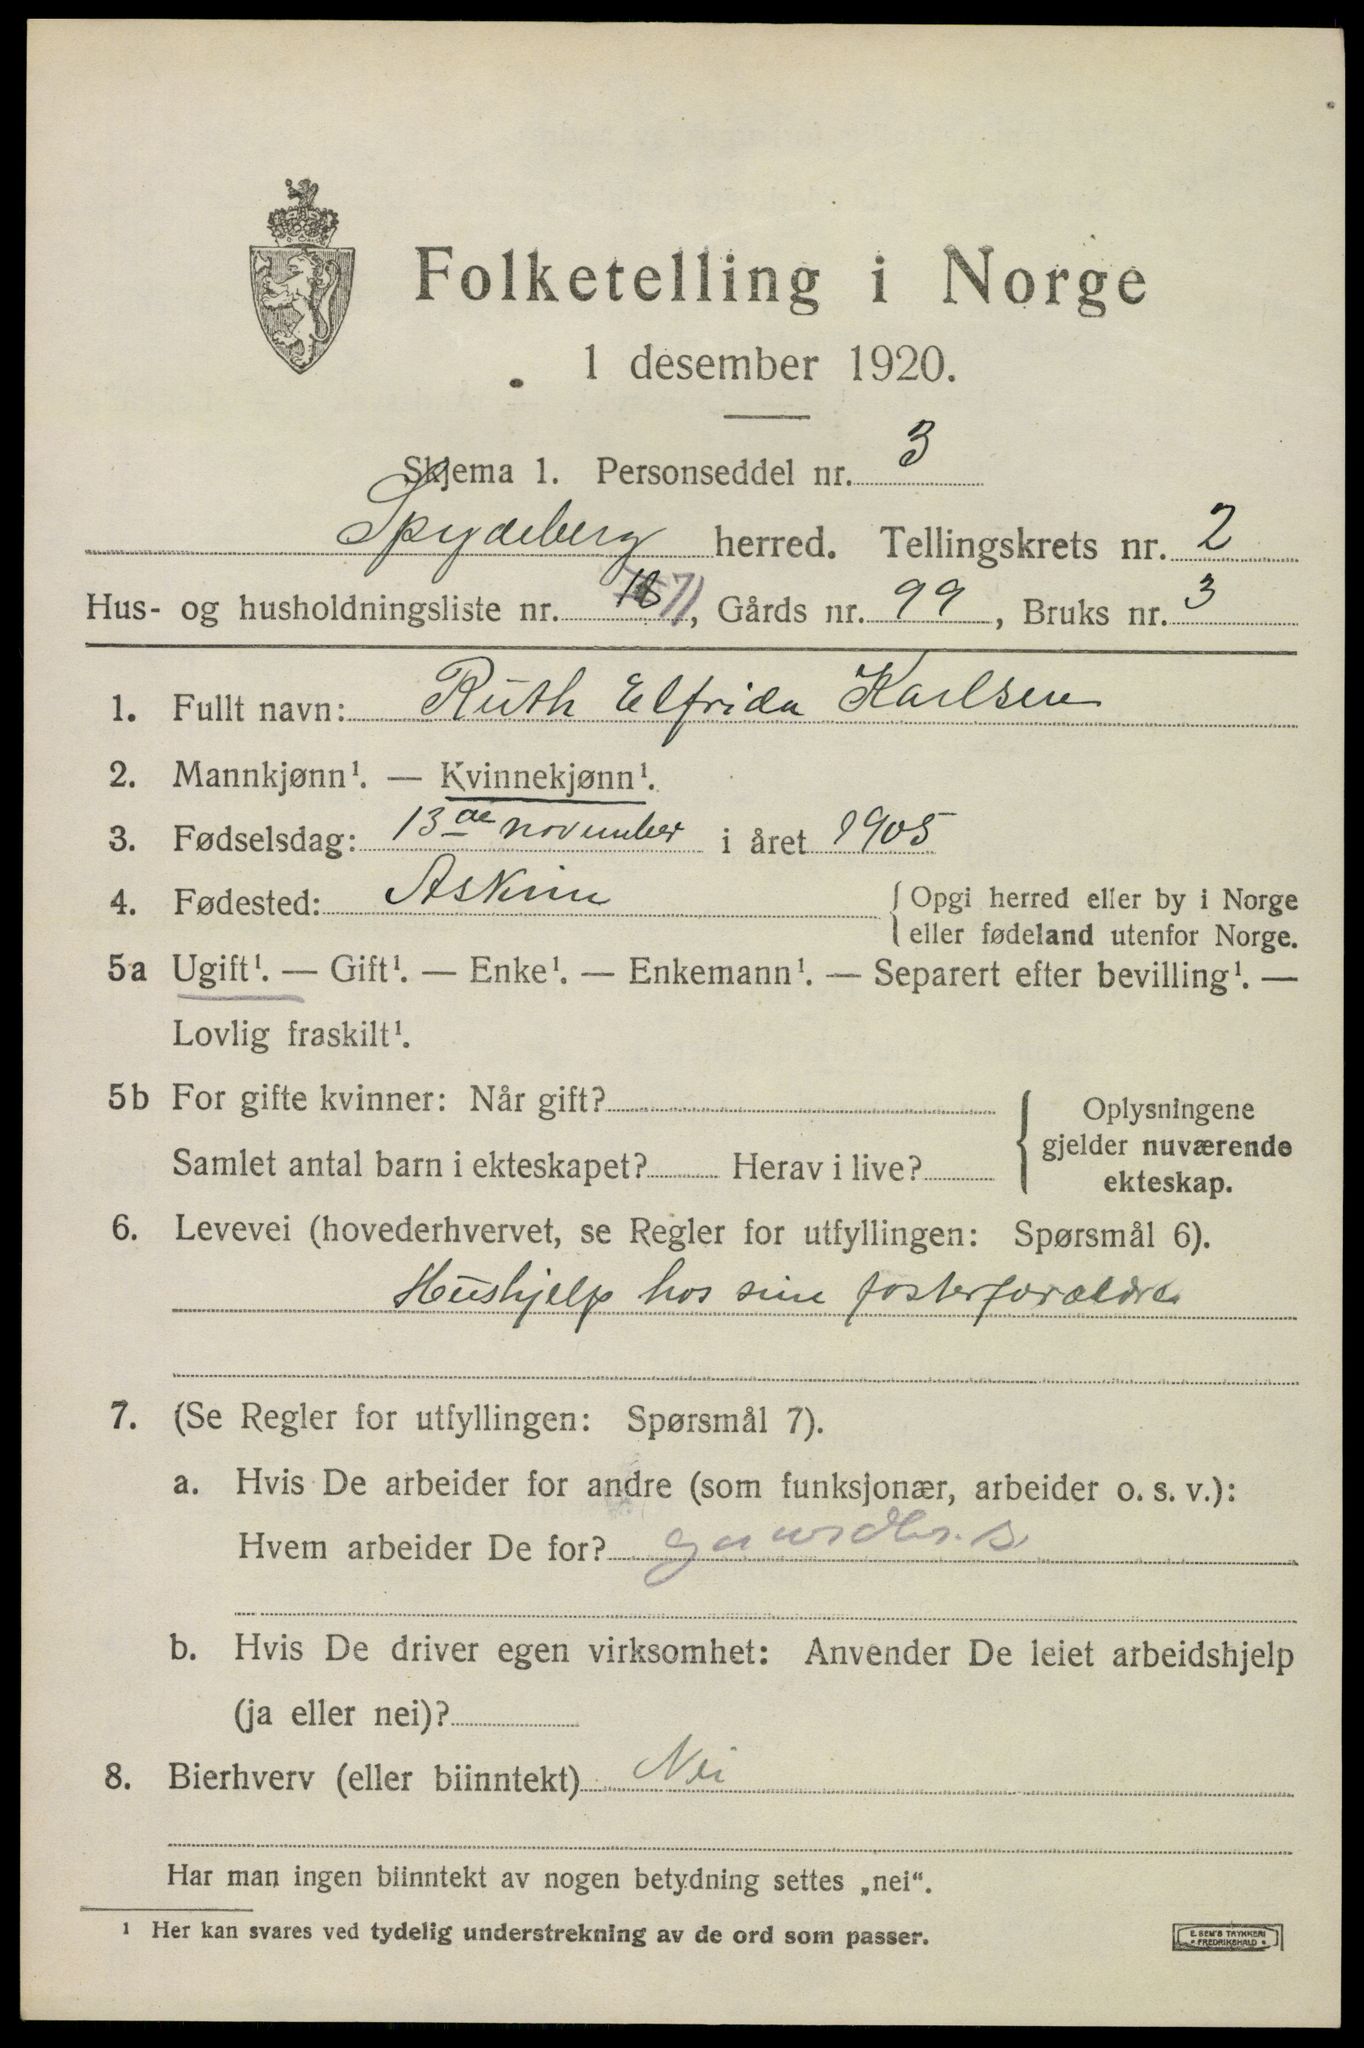 Folketelling i Norge
1 desember 1920.
Skjema 1. Personseddel nr. 3
Spydeberg herred. Tellingskrets nr. 2
Hus- og husholdningsliste nr. 71, Gårds nr. 99, Bruks nr. 3
1. Fullt navn: Ruth Elfrida Karlsen
2. Mannkjønn¹. — Kvinnekjønn¹.
3. Fødselsdag: 13de november i året 1905
4. Fødested: Askim { Opgi herred eller by i Norge
eller fødeland utenfor Norge.
5a Ugift¹. — Gift¹. — Enke¹. — Enkemann¹. — Separert efter bevilling¹. —
Lovlig fraskilt¹.
5b For gifte kvinner: Når gift?
Samlet antal barn i ekteskapet? Herav i live?
Oplysningene
gjelder nuværende
ekteskap.
6. Levevei (hovederhvervet, se Regler for utfyllingen: Spørsmål 6).
Hushjelp hos sine fosterforældre
7. (Se Regler for utfyllingen: Spørsmål 7).
a. Hvis De arbeider for andre (som funksjonær, arbeider o. s. v.):
Hvem arbeider De for?
b. Hvis De driver egen virksomhet: Anvender De leiet arbeidshjelp
(ja eller nei)?
8. Bierhverv (eller biinntekt) Nei
Har man ingen biinntekt av nogen betydning settes „nei“.
¹ Her kan svares ved tydelig understrekning av de ord som passer.
E. SEM'S TRYKKERI
FREDRIKSHALD